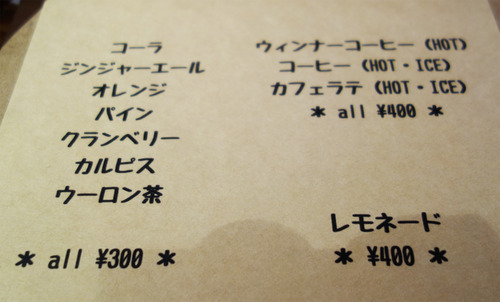 コーラ
ジンジャーエール
オレンジ
パイン
クランベリー
カルピス
ウーロン茶
* all ¥300 *
ウィンナーコーヒー (HOT)
コーヒー (HOT・ICE)
カフェラテ (HOT・ICE)
* all ¥400 *
レモネード
* ¥400 *